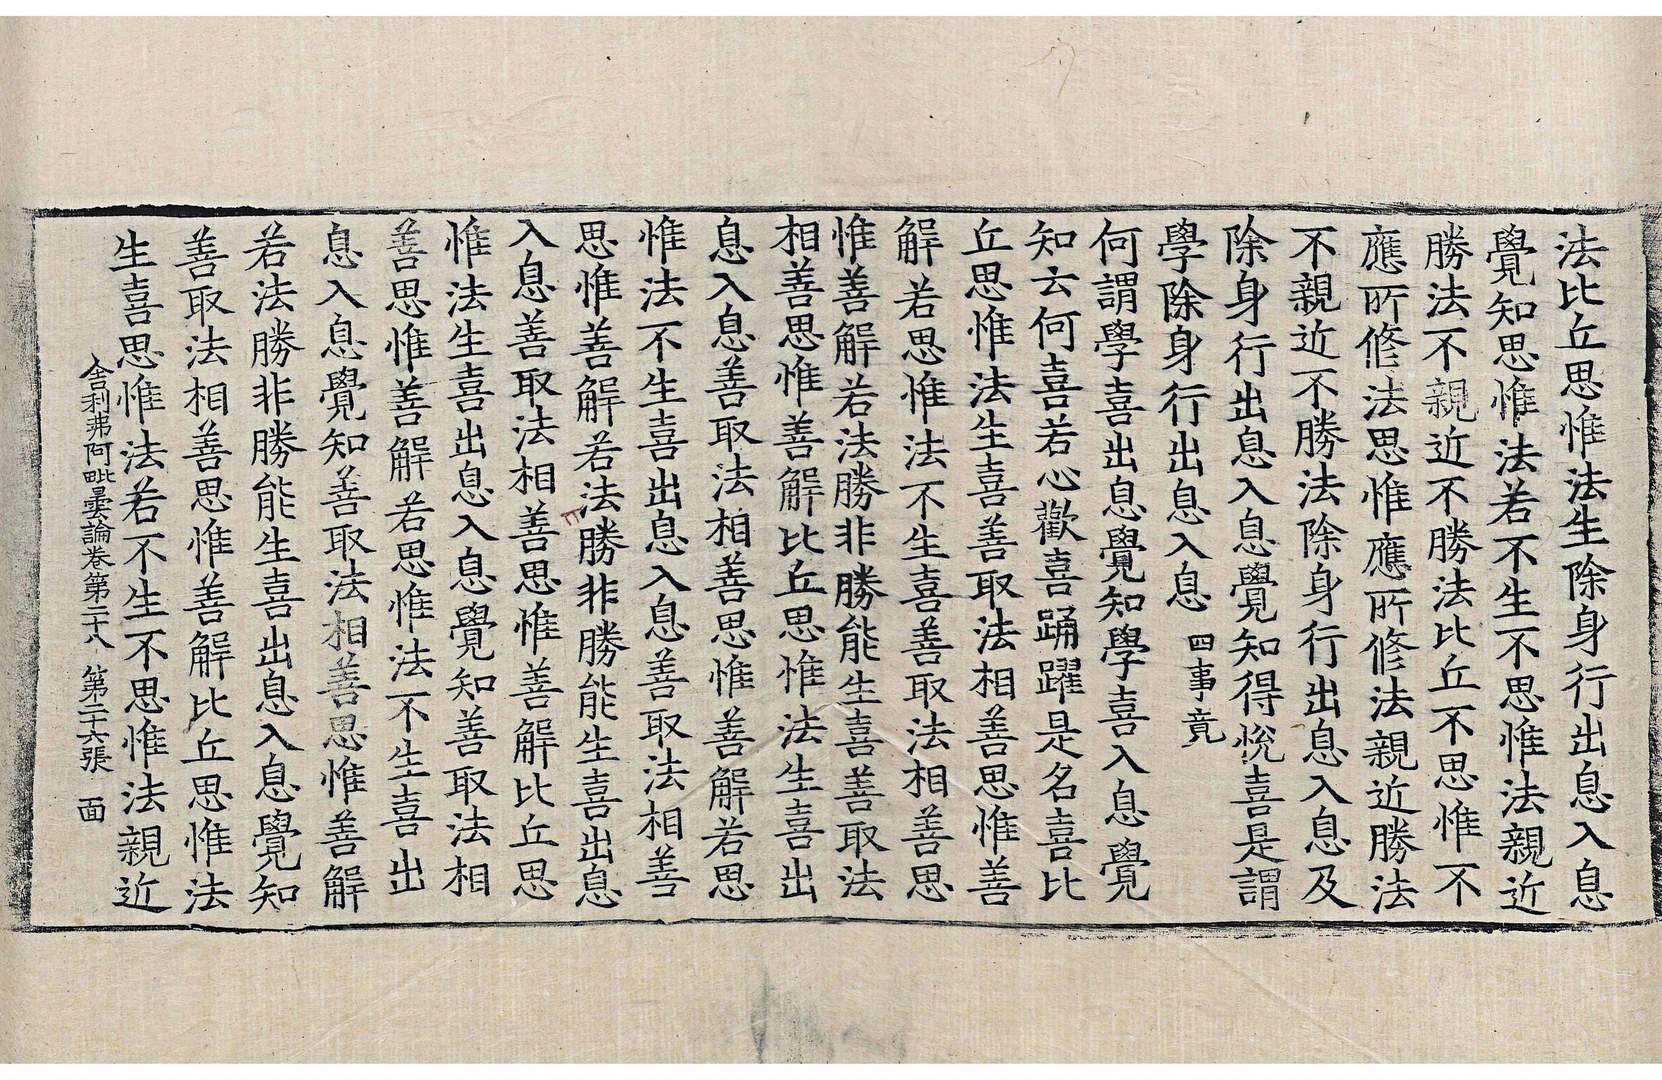 法比丘思惟法生除身行出息入息
覺知思惟法若不生不思惟法親近
勝法不親近不勝法比丘不思惟不
應所修法思惟應所修法親近勝法
不親近不勝法除身行出息入息及
除身行出息入息覺知得悅喜是謂
學除身行出息入息 四事竟
何謂學喜出息覺知學喜入息覺
知云何喜若心歡喜踊躍是名喜比
丘思惟法生喜善取法相善思惟善
解若思惟法不生喜善取法相善思
惟善解若法勝非勝能生喜善取法
相善思惟善解比丘思惟法生喜出
息入息善取法相善思惟善解若思
惟法不生喜出息入息善取法相善
思惟善解若法勝非勝能生喜出息
入息善取法相善思惟善解比丘思
惟法生喜出息入息覺知善取法相
善思惟善解若思惟法不生喜出
息入息覺知善取法相善思惟善解
若法勝非勝能生喜出息入息覺知
善取法相善思惟善解比丘思惟法
生喜思惟法若不生不思惟法親近
舍利弗阿毗曇論卷第二十八 第二十六張 面